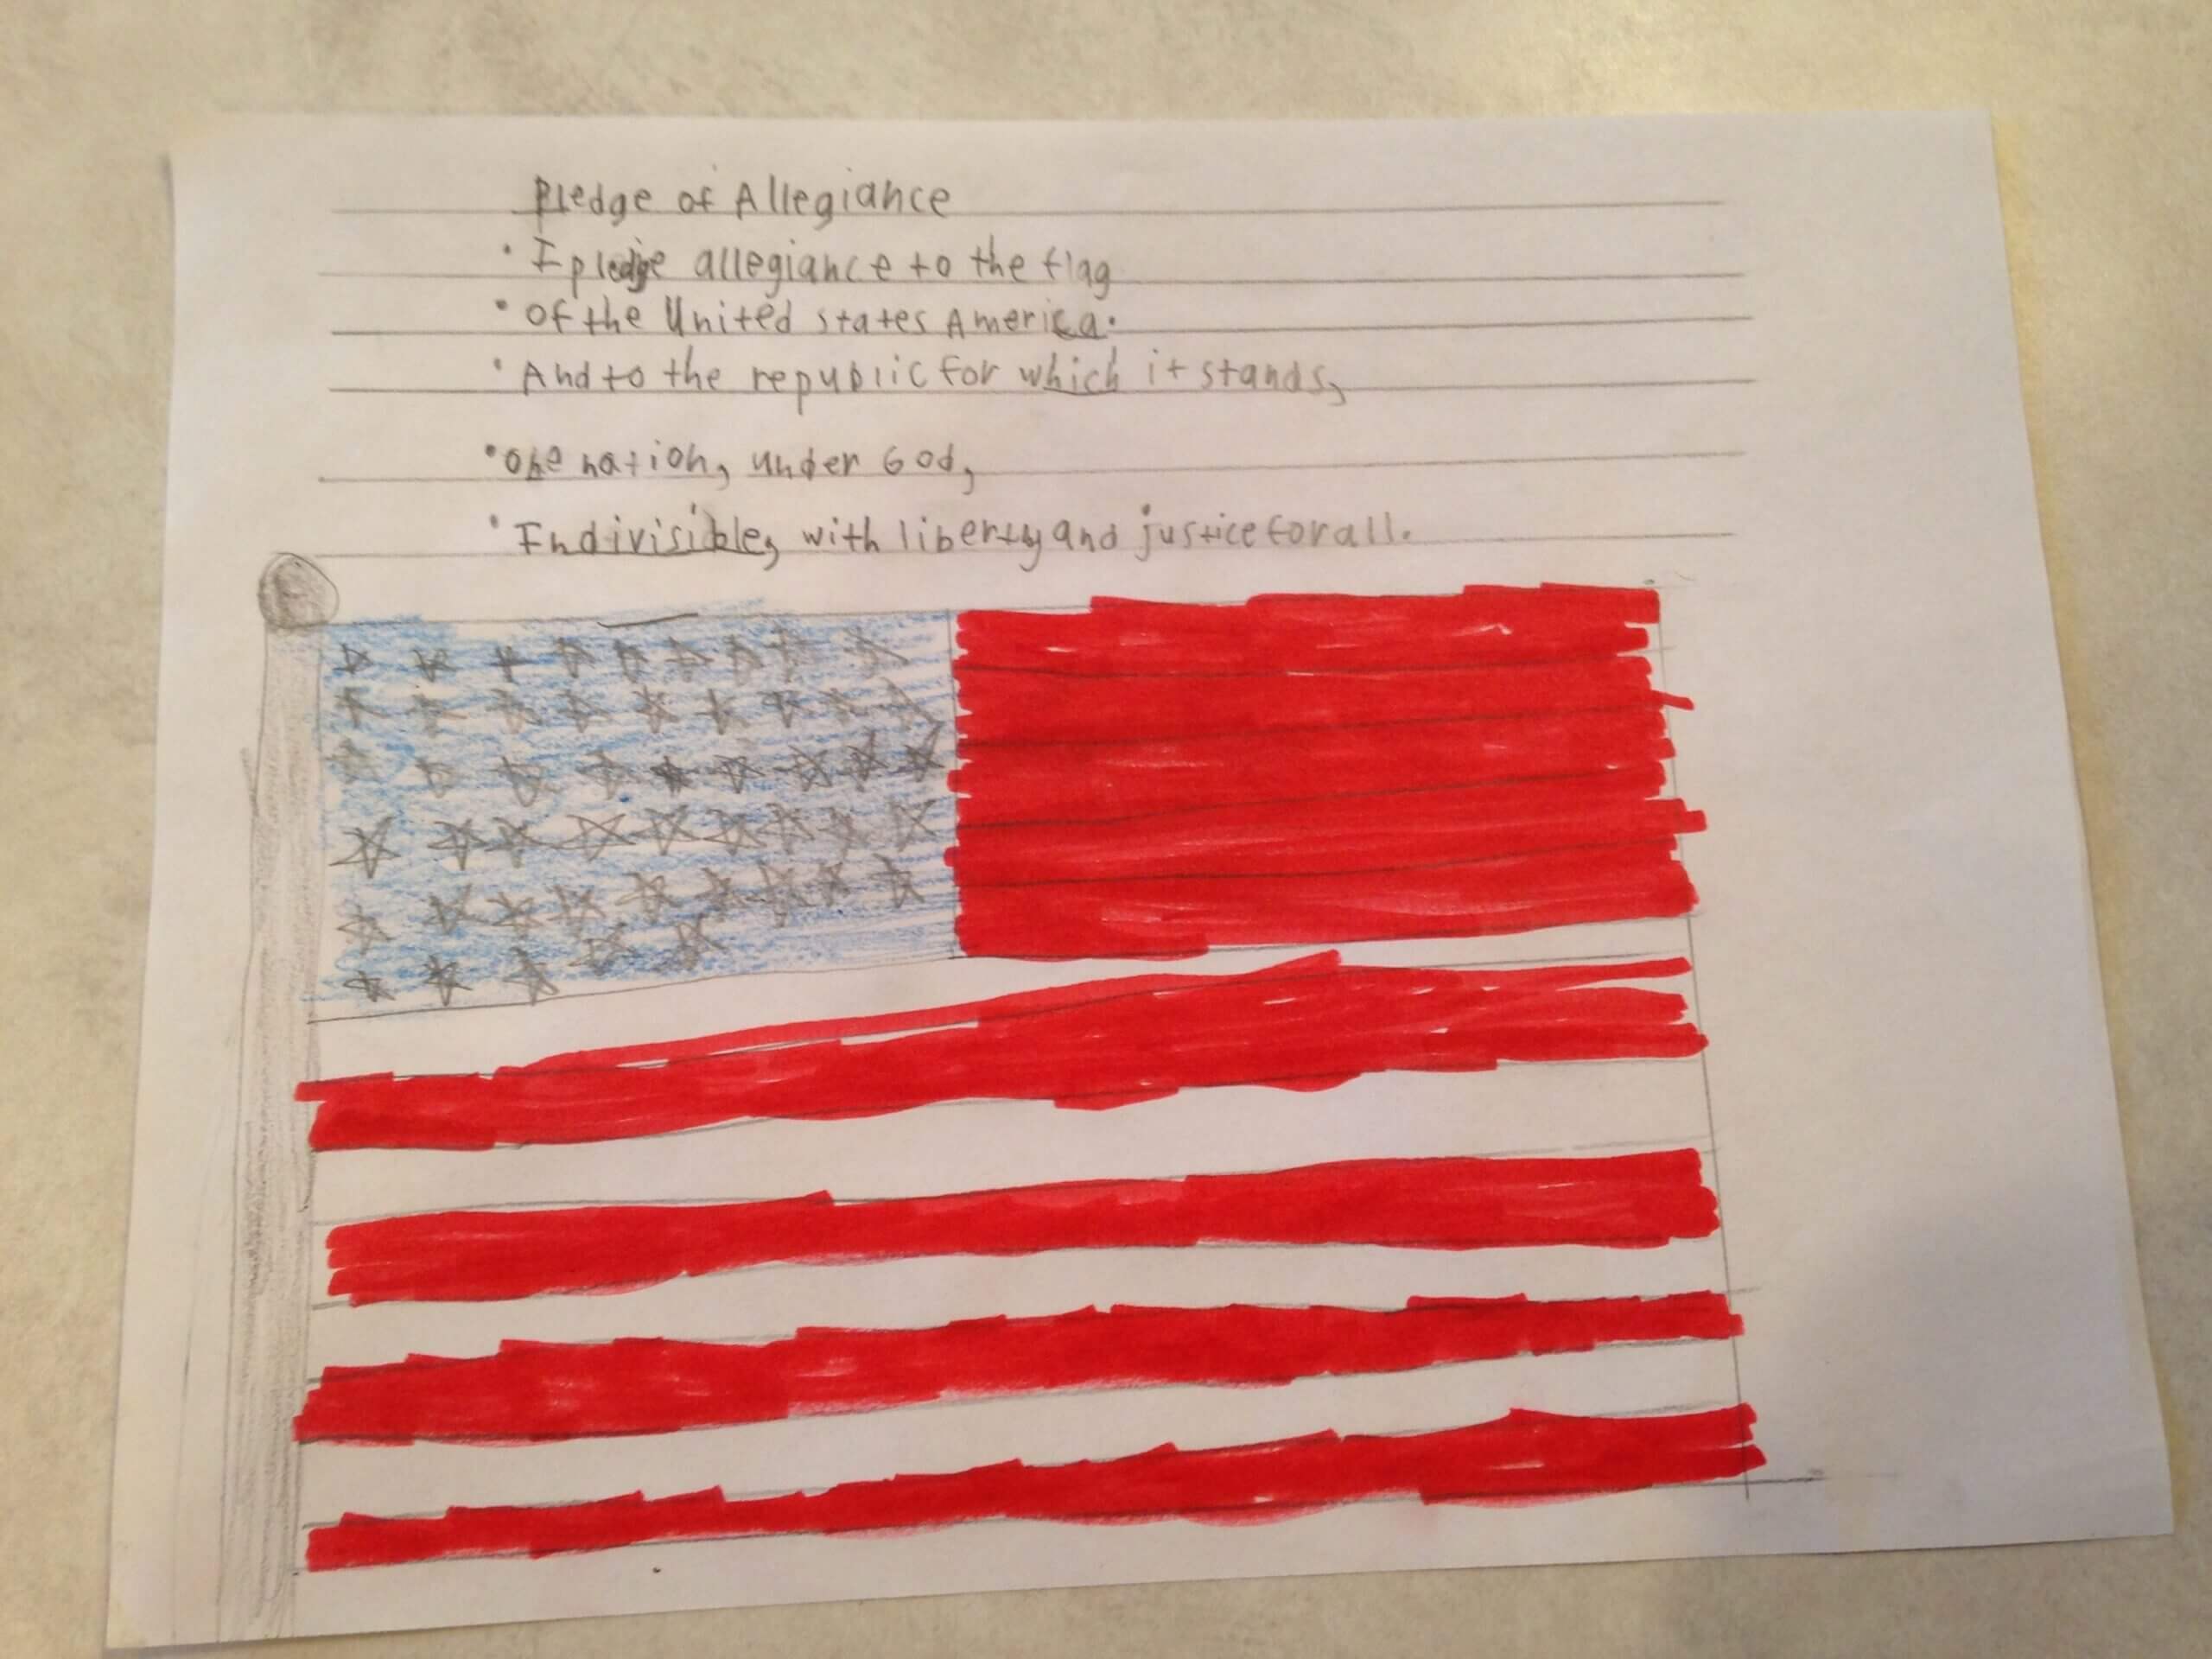 Pledge of Allegiance
• I pledge allegiance to the flag
• of the United states America.
• And to the republic for which it stands,
• one nation, under God,
• Indivisible, with liberty and justice for all.